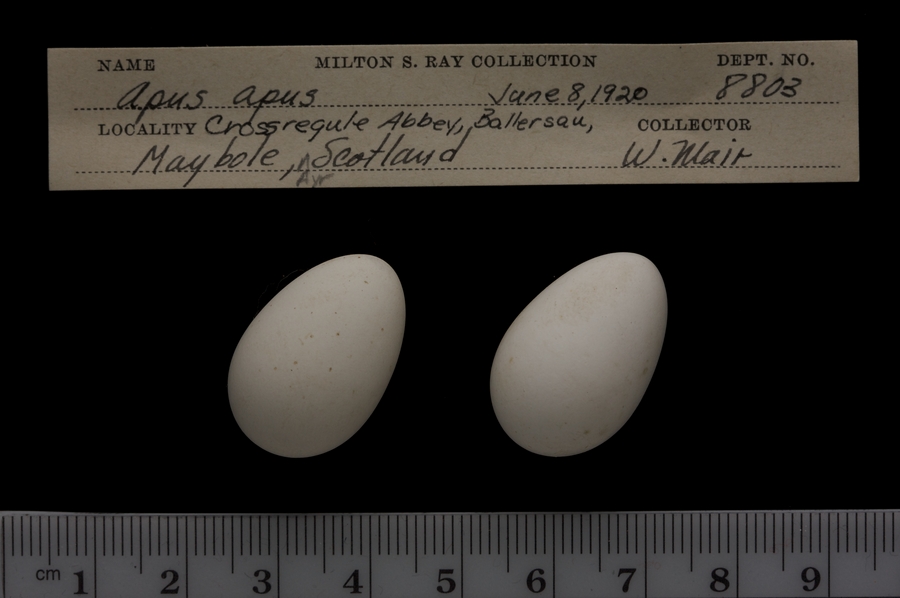 NAME MILTON S. RAY COLLECTION DEPT. NO.
Apus apus June 8, 1920 8803
LOCALITY Crossregule Abbey, Ballersau, COLLECTOR
Maybole, Ayr Scotland W. Mair
cm 1 2 3 4 5 6 7 8 9